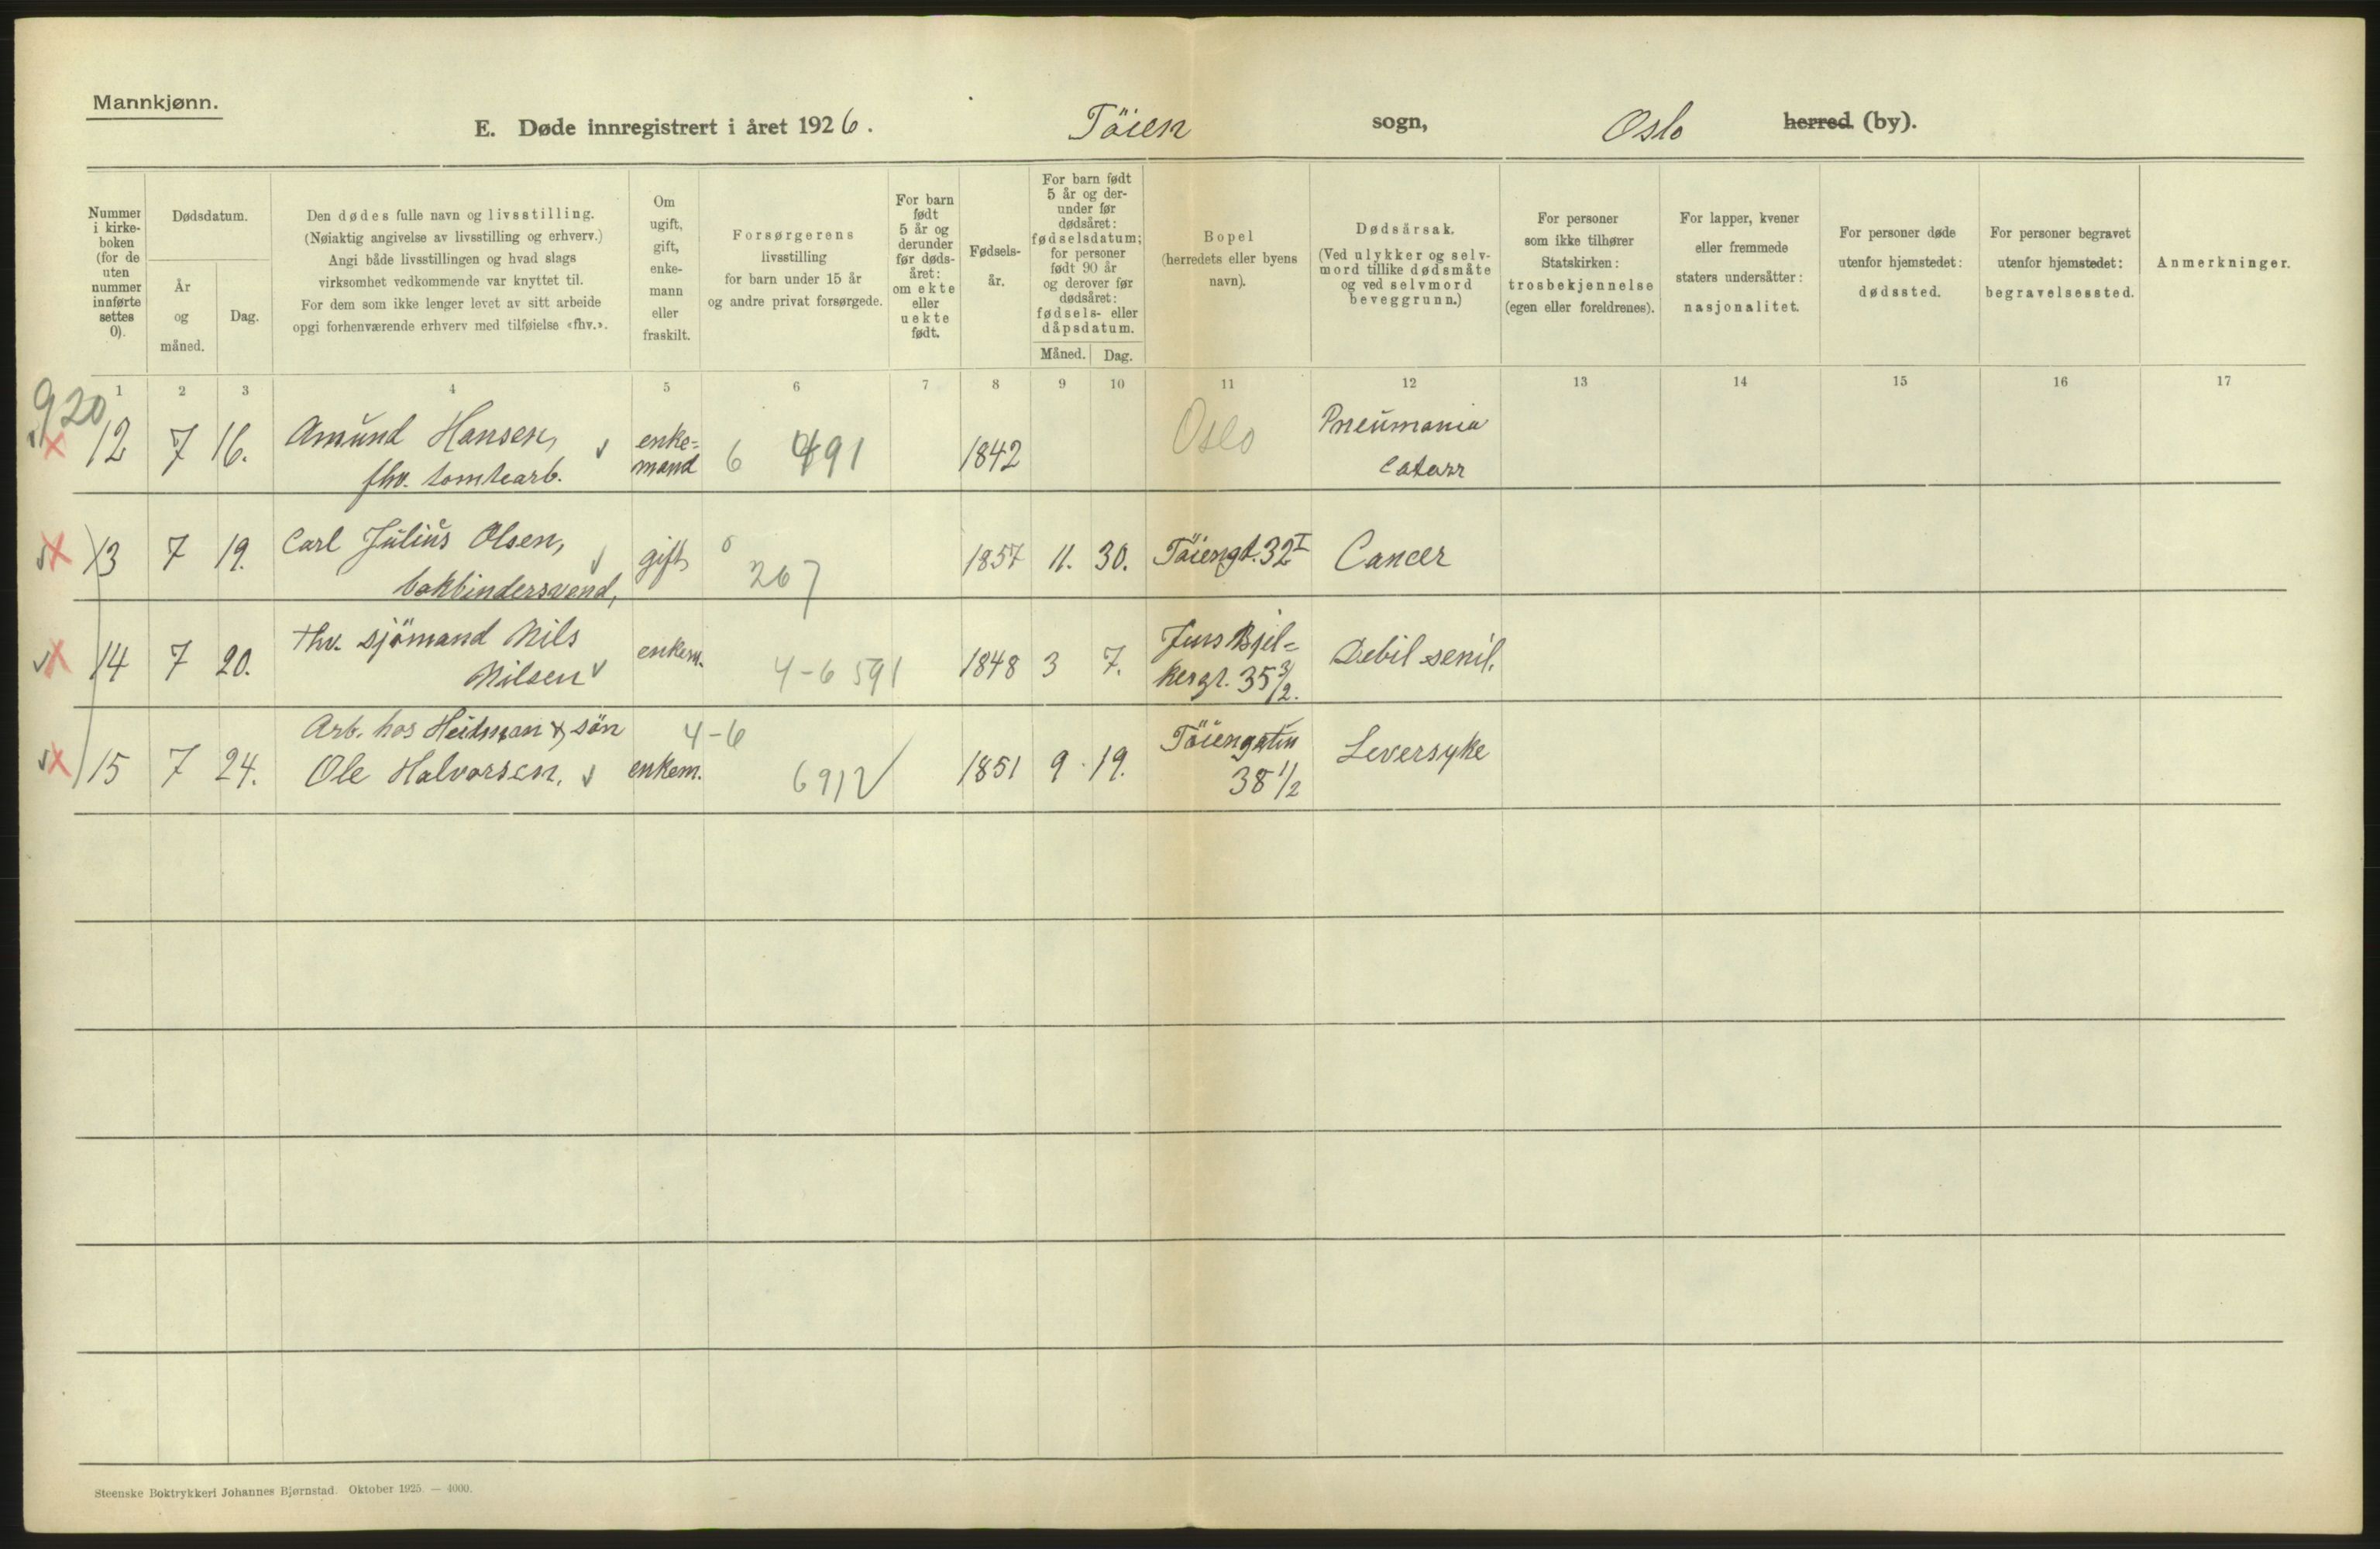 Mannkjønn.
E. Døde innregistrert i året 1926. Töien sogn, Oslo herred (by).
Nummer i kirke- boken (for de uten nummer innførte settes 0).
Dødsdatum.
År og måned.
Dag.
Den dødes fulle navn og livsstilling.
(Nøiaktig angivelse av livsstilling og erhverv.)
Angi både livsstillingen og hvad slags
virksomhet vedkommende var knyttet til.
For dem som ikke lenger levet av sitt arbeide
opgi forhenværende erhverv med tilføielse «fhv.».
Om ugift, gift, enke- mann eller fraskilt.
Forsørgerens
livsstilling
for barn under 15 år
og andre privat forsørgede.
For barn født 5 år og derunder før døds- året: om ekte eller uekte født.
Fødsels- år.
For barn født 5 år og der- under før dødsåret: fødselsdatum; for personer født 90 år og derover før dødsåret: fødsels- eller dåpsdatum.
Måned. Dag.
Bopel
(herredets eller byens
navn).
Dødsårsak.
(Ved ulykker og selv-
mord tillike dødsmåte
og ved selvmord
beveggrunn.)
For personer
som ikke tilhører
Statskirken:
trosbekjennelse
(egen eller foreldrenes).
For lapper, kvener
eller fremmede
staters undersåtter:
nasjonalitet.
For personer døde
utenfor hjemstedet:
dødssted.
For personer begravet
utenfor hjemstedet:
begravelsessted.
Anmerkninger.
1 2 3 4 5 6 7 8 9 10 11 12 13 14 15 16 17
920
12 7 16. Amund Hansen, enke= 6 491 1842 Oslo Pneumonia
fhv. tomtearb. mand catarr
13 7 19. Carl Julius Olsen, gift 267 1857 11. 30. Töiengt. 32 I Cancer
bokbindersvend,
14 7 20. Fhv. sjömand Nils enkem. 4-6 591 1848 3 7. Jens Bjel= Debil senil.
Nilsen kesgt. 35 3/2.
Arb. hos Heidman & sön 4-6 Töiengaten
15 7 24. Ole Halvorsen. enkem. 691 1851 9 19. 38 1/2 Leversyke
Steenske Boktrykkeri Johannes Bjørnstad. Oktober 1925. — 4000.